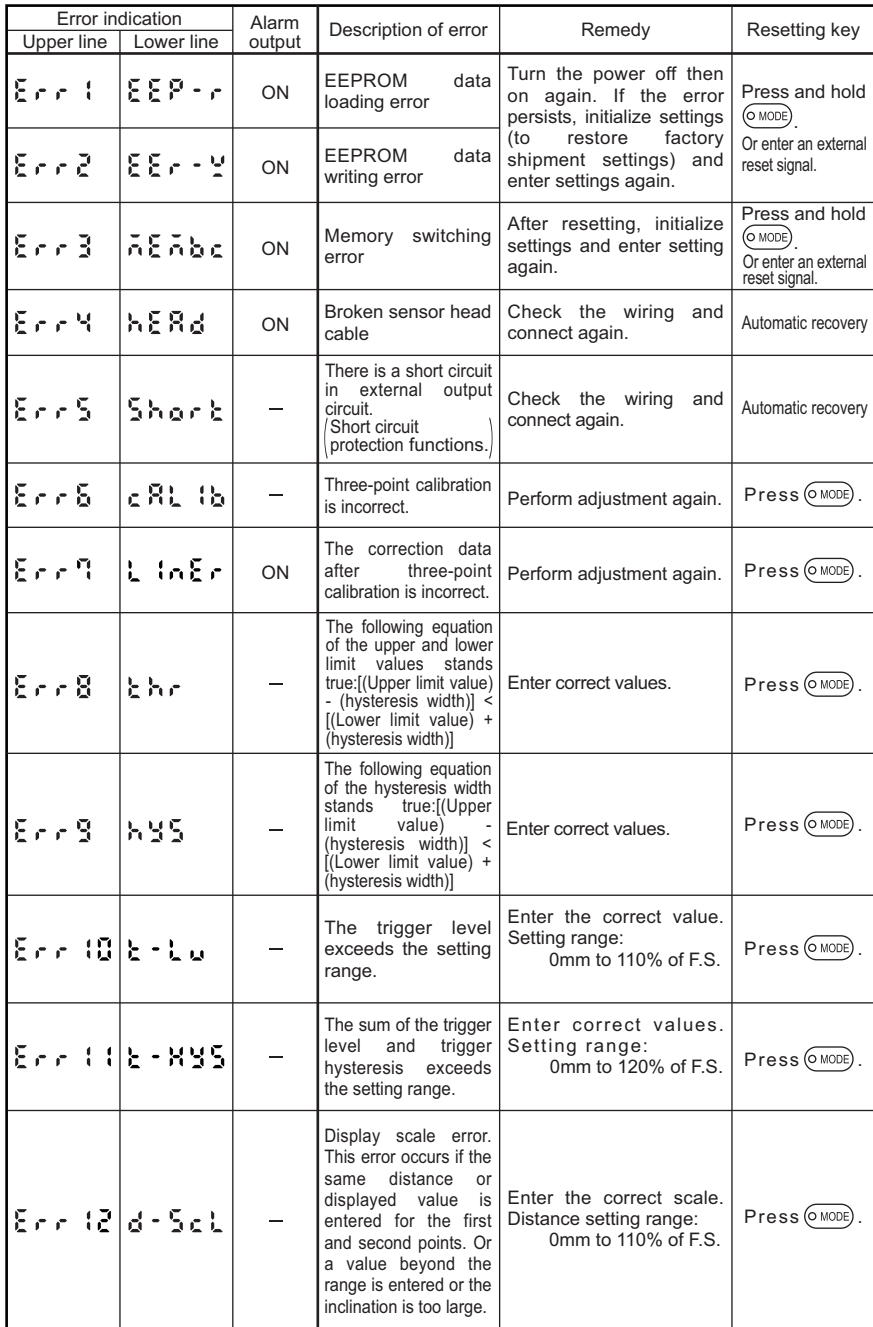 Error indication
Alarm output
Description of error
Remedy
Resetting key
Upper line
Lower line
Err1
EEP-r
ON
EEPROM data
loading error
Turn the power off then
on again. If the error
persists, initialize settings
(to restore factory
shipment settings) and
enter settings again.
Press and hold
MODE.
Or enter an external
reset signal.
Err2
EEr-Y
ON
EEPROM data
writing error
Err3
ON
Memory switching
error
After resetting, initialize
settings and enter setting
again.
Press and hold
MODE.
Or enter an external
reset signal.
Err4
hEAd
ON
Broken sensor head
cable
Check the wiring and
connect again.
Automatic recovery
Err5
Short
–
There is a short circuit
in external output
circuit.
(Short circuit
protection functions.)
Check the wiring and
connect again.
Automatic recovery
Err6
cAL1b
–
Three-point calibration
is incorrect.
Perform adjustment again.
Press MODE.
Err7
L1nEr
ON
The correction data
after three-point
calibration is incorrect.
Perform adjustment again.
Press MODE.
Err8
thr
–
The following equation
of the upper and lower
limit values stands
true:[(Upper limit value)
- (hysteresis width)] <
[(Lower limit value) +
(hysteresis width)]
Enter correct values.
Press MODE.
Err9
hYS
–
The following equation
of the hysteresis width
stands true:[(Upper
limit value) -
(hysteresis width)] <
[(Lower limit value) +
(hysteresis width)]
Enter correct values.
Press MODE.
Err10
t-Lu
–
The trigger level
exceeds the setting
range.
Enter the correct value.
Setting range:
0mm to 110% of F.S.
Press MODE.
Err11
t-HYS
–
The sum of the trigger
level and trigger
hysteresis exceeds
the setting range.
Enter correct values.
Setting range:
0mm to 120% of F.S.
Press MODE.
Err12
d-ScL
–
Display scale error.
This error occurs if the
same distance or
displayed value is
entered for the first
and second points. Or
a value beyond the
range is entered or the
inclination is too large.
Enter the correct scale.
Distance setting range:
0mm to 110% of F.S.
Press MODE.